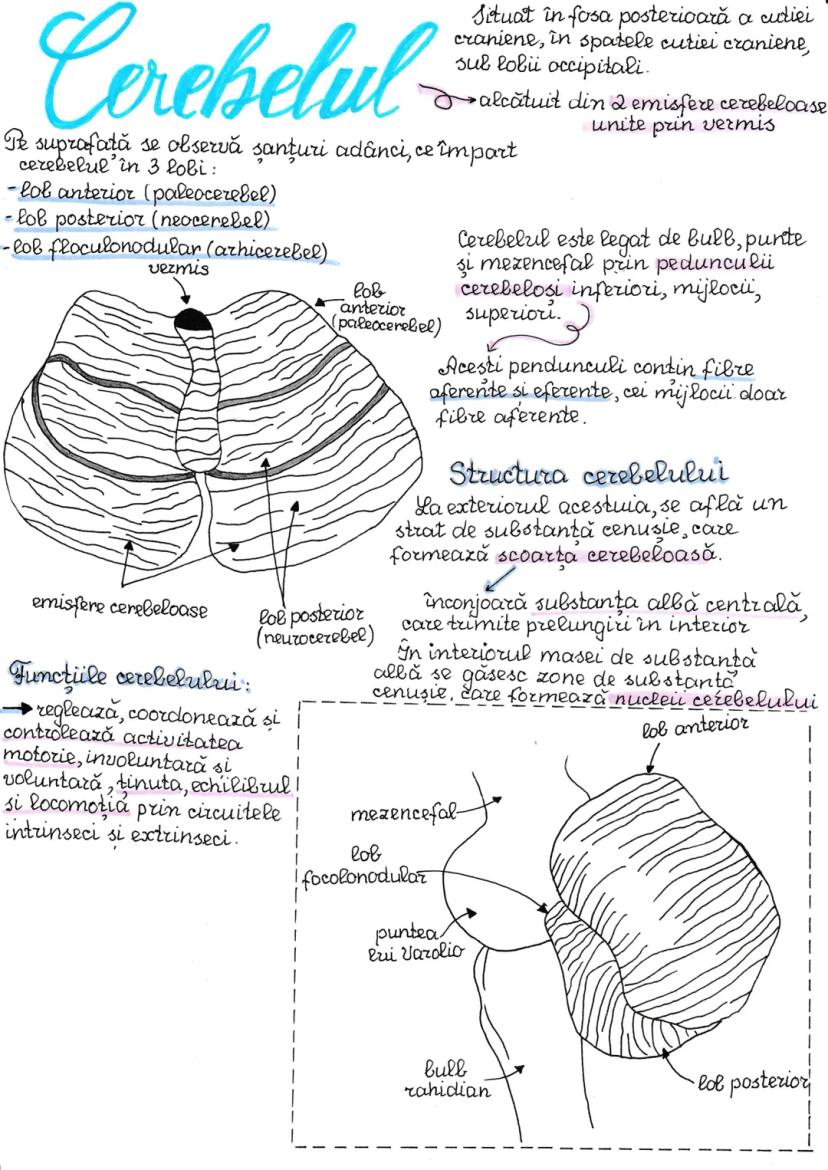 Cerebelul
Situat în fosa posterioară a cutiei
craniene, în spatele cutiei craniene,
sub lobii occipitali.
alcătuit din 2 emisfere cerebeloase
unite prin vermis
Pe suprafață se observă șanțuri adânci, ce împart
cerebelul în 3 lobi:
-lob anterior (paleocerebel)
-lob posterior (neocerebel)
-lob floculonodular (arhicerebel)
vermis
lob
anterior
(paleocerebel)
emisfere cerebeloase
lob posterior
(neurocerebel)
Cerebelul este legat de bulb, punte
și mezencefal prin pedunculii
cerebeloși inferiori, mijlocii,
superiori.
Acești pendunculi conțin fibre
aferente și eferente, cei mijlocii doar
fibre aferente.
Structura cerebelului
La exteriorul acestuia, se află un
strat de substanță cenușie, care
formează scoarța cerebeloasă.
înconjoară substanța albă centrală,
care trimite prelungiri în interior
În interiorul masei de substanță
albă se găsesc zone de substanță
cenușie, care formează nucleii cerebelului
Funcțiile cerebelului:
reglează, coordonează și
controlează activitatea
motorie, involuntară și
voluntară, ținuta, echilibrul
și locomoția prin circuitele
intrinseci și extrinseci.
lob anterior
mezencefal
lob
focolonodular
puntea
lui Varolio
bulb
rahidian
lob posterior